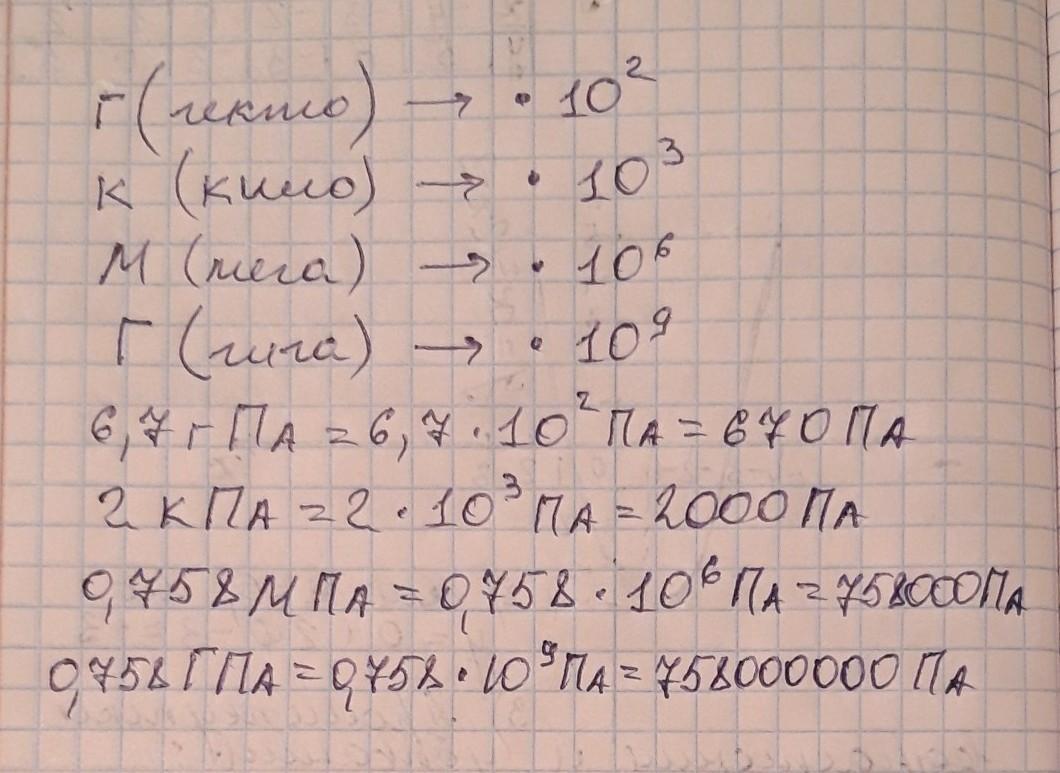 г (гекто) → · 10²
к (кило) → · 10³
М (мега) → · 10⁶
Г (гига) → · 10⁹
6,7 гПа = 6,7 · 10² Па = 670 Па
2 кПа = 2 · 10³ Па = 2000 Па
0,758 МПа = 0,758 · 10⁶ Па = 758000 Па
0,758 ГПа = 0,758 · 10⁹ Па = 758000000 Па